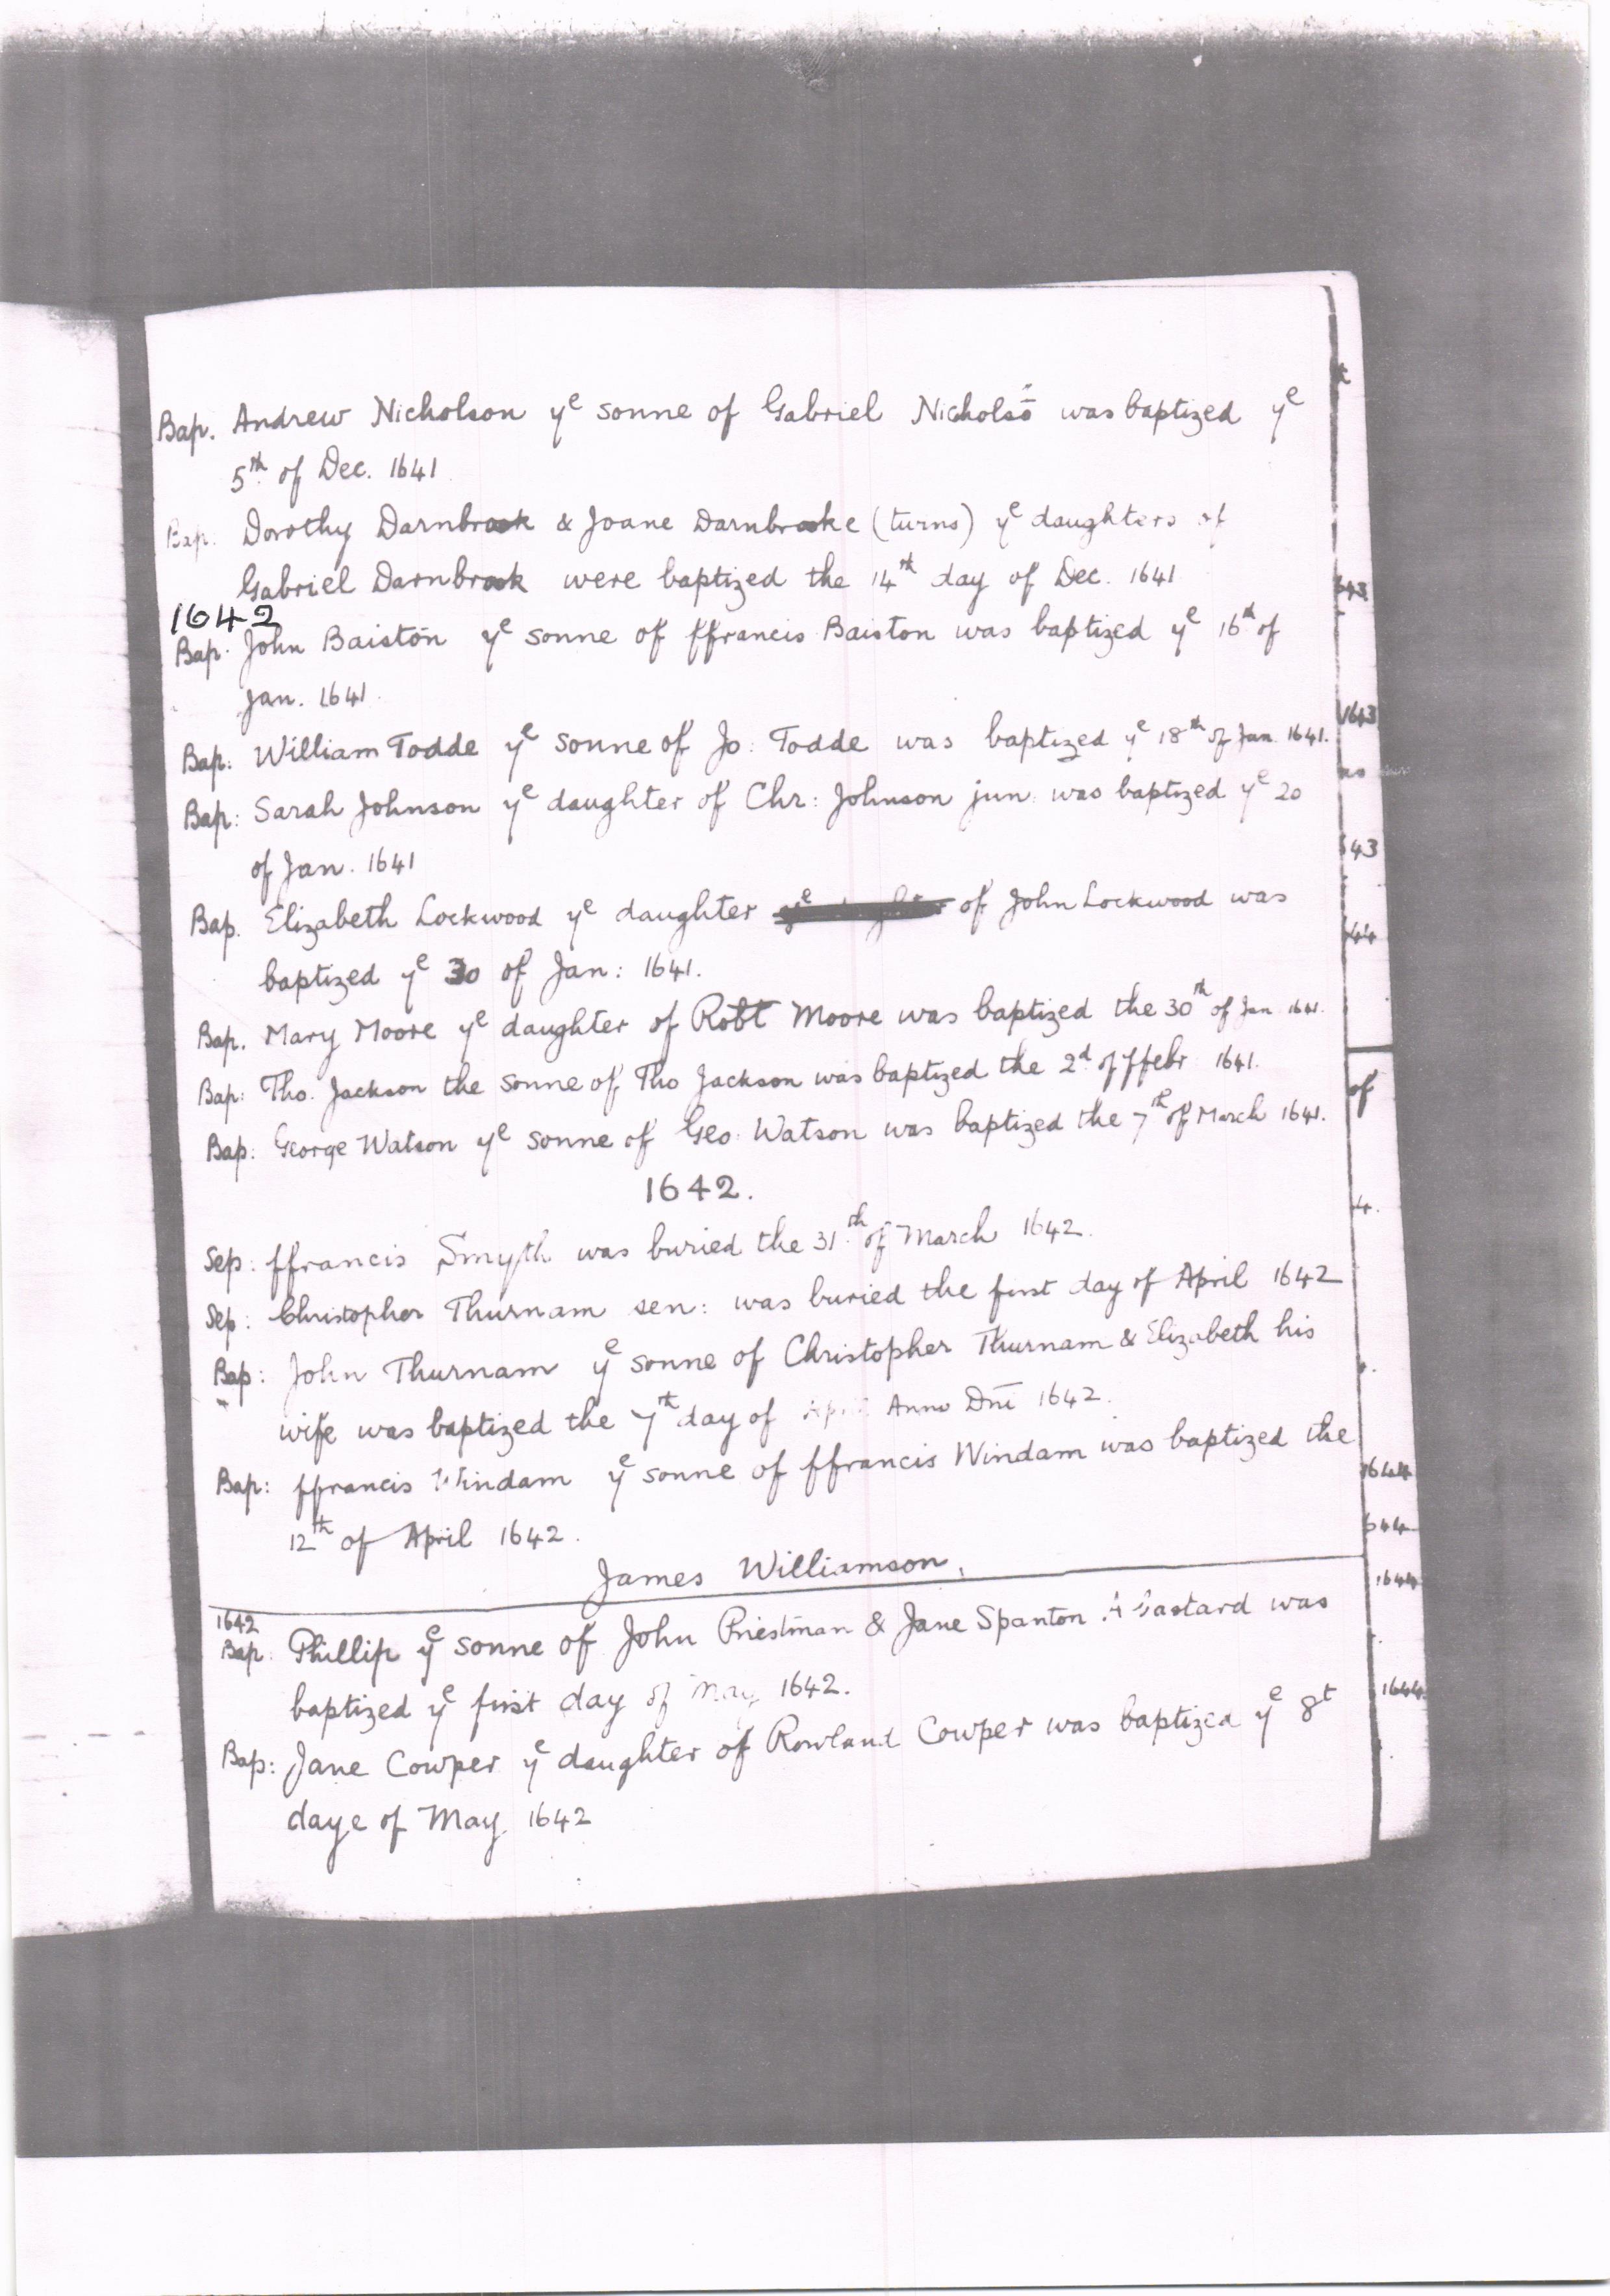 Bap. Andrew Nicholson yᵉ sonne of Gabriel Nicholsō was baptized yᵉ
5th of Dec. 1641
Bap. Dorothy Darnbrook & Joane Darnbrooke (turns) yᵉ daughters of
Gabriel Darnbrook were baptized the 14th day of Dec. 1641
1642
Bap. John Baiston yᵉ sonne of ffrancis Baiston was baptized yᵉ 16th of
Jan. 1641
Bap: William Todde yᵉ sonne of Jo: Todde was baptized yᵉ 18th of Jan 1641.
Bap: Sarah Johnson yᵉ daughter of Chr: Johnson jun: was baptized yᵉ 20
of Jan. 1641
Bap. Elizabeth Lockwood yᵉ daughter of John Lockwood was
baptized yᵉ 30 of Jan: 1641.
Bap. Mary Moore yᵉ daughter of Robt Moore was baptized the 30th of Jan 1641.
Bap: Tho. Jackson the sonne of Tho Jackson was baptized the 2d of ffebr 1641.
Bap: George Watson yᵉ sonne of Geo: Watson was baptized the 7th of March 1641.
1642.
Sep: ffrancis Smyth was buried the 31th of March 1642.
Sep: Christopher Thurnam sen: was buried the first day of April 1642
Bap: John Thurnam yᵉ sonne of Christopher Thurnam & Elizabeth his
wife was baptized the 7th day of April Anno Dni 1642.
Bap: ffrancis Windam yᵉ sonne of ffrancis Windam was baptized the
12th of April 1642.
James Williamson.
1642
Bap: Phillip yᵉ sonne of John Priestman & Jane Spanton A bastard was
baptized yᵉ first day of May 1642.
Bap: Jane Cowper yᵉ daughter of Rowland Cowper was baptized yᵉ 8t
daye of May 1642
1643
43
44
of
4.
1644
644
1644
1644